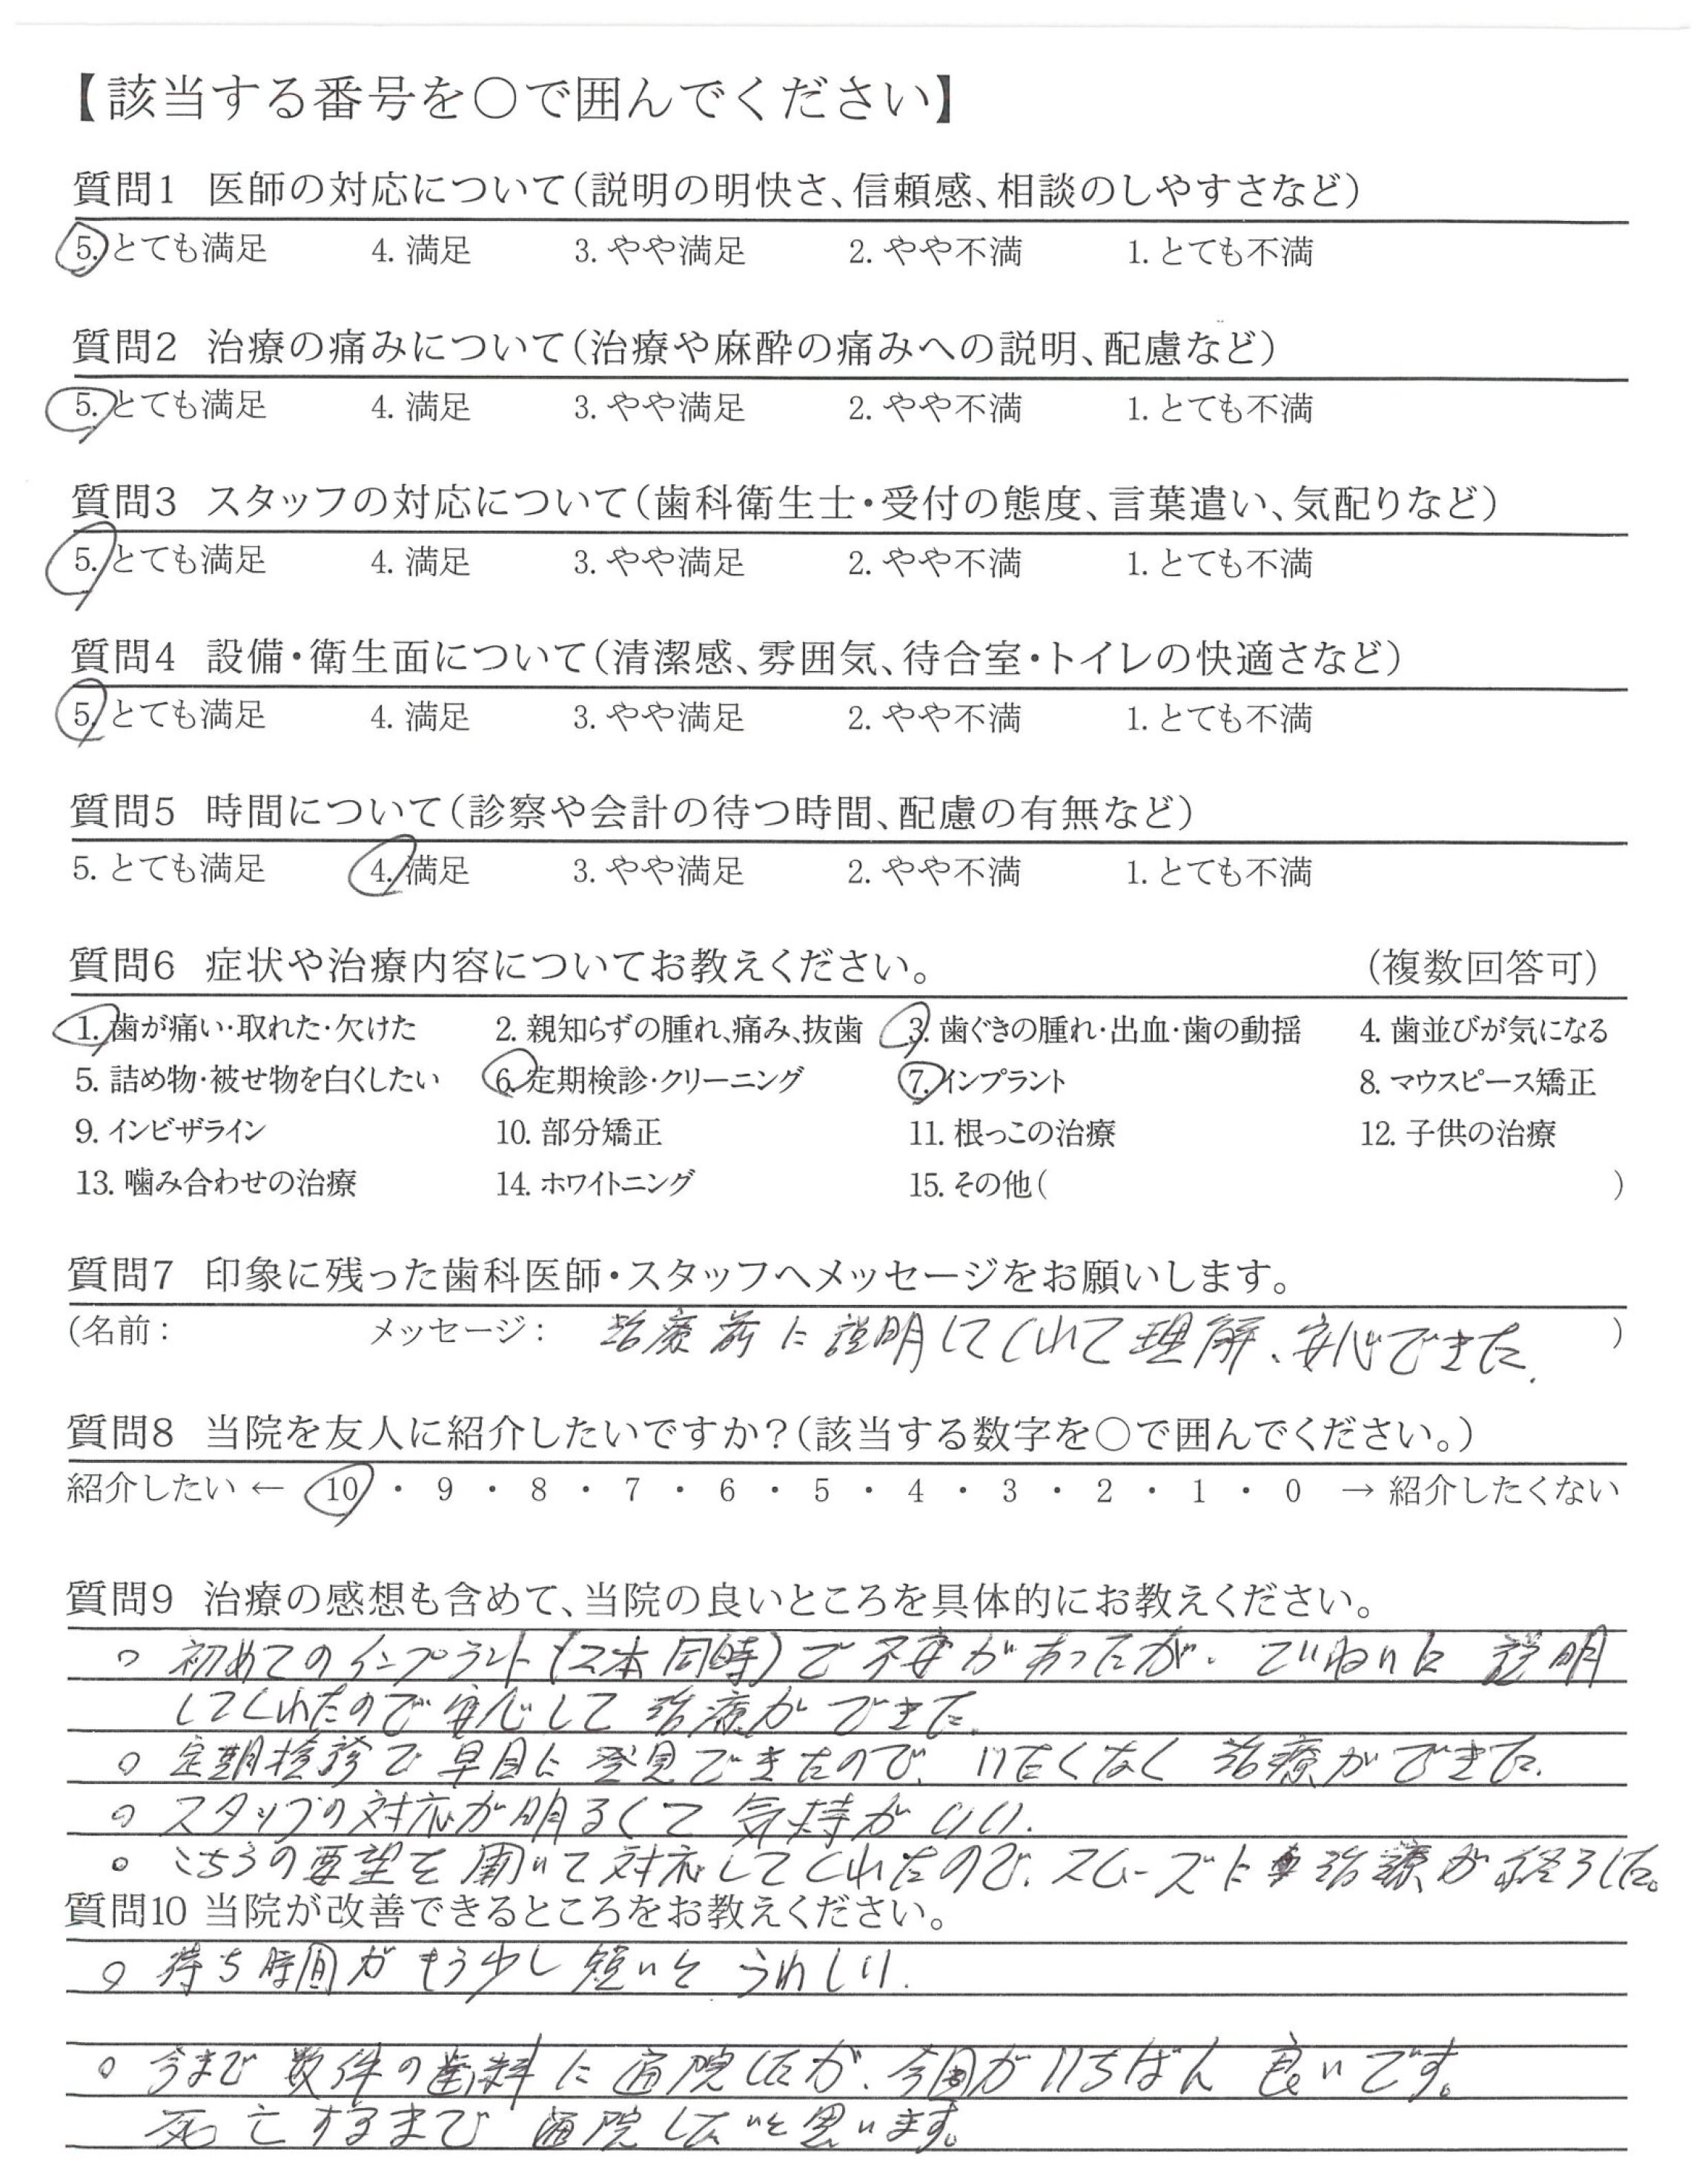 【該当する番号を〇で囲んでください】
質問1 医師の対応について(説明の明快さ、信頼感、相談のしやすさなど)
5. とても満足 4. 満足 3. やや満足 2. やや不満 1. とても不満
質問2 治療の痛みについて(治療や麻酔の痛みへの説明、配慮など)
5. とても満足 4. 満足 3. やや満足 2. やや不満 1. とても不満
質問3 スタッフの対応について(歯科衛生士・受付の態度、言葉遣い、気配りなど)
5. とても満足 4. 満足 3. やや満足 2. やや不満 1. とても不満
質問4 設備・衛生面について(清潔感、雰囲気、待合室・トイレの快適さなど)
5. とても満足 4. 満足 3. やや満足 2. やや不満 1. とても不満
質問5 時間について(診察や会計の待つ時間、配慮の有無など)
5. とても満足 4. 満足 3. やや満足 2. やや不満 1. とても不満
質問6 症状や治療内容についてお教えください。 (複数回答可)
1. 歯が痛い・取れた・欠けた 2. 親知らずの腫れ、痛み、抜歯 3. 歯ぐきの腫れ・出血・歯の動揺 4. 歯並びが気になる
5. 詰め物・被せ物を白くしたい 6. 定期検診・クリーニング 7. インプラント 8. マウスピース矯正
9. インビザライン 10. 部分矯正 11. 根っこの治療 12. 子供の治療
13. 噛み合わせの治療 14. ホワイトニング 15. その他( )
質問7 印象に残った歯科医師・スタッフへメッセージをお願いします。
(名前: メッセージ: 治療前に説明してくれて理解、安心できた. )
質問8 当院を友人に紹介したいですか?(該当する数字を〇で囲んでください。)
紹介したい ← 10 ・ 9 ・ 8 ・ 7 ・ 6 ・ 5 ・ 4 ・ 3 ・ 2 ・ 1 ・ 0 → 紹介したくない
質問9 治療の感想も含めて、当院の良いところを具体的にお教えください。
○ 初めてのインプラント(2本同時)で不安があったが、ていねいに説明
してくれたので安心して治療ができた.
○ 定期検診で早目に発見できたので、いたくなく治療ができた.
○ スタッフの対応が明るくて気持がいい.
○ こちらの要望を聞いて対応してくれたので、スムーズに治療が終了した。
質問10 当院が改善できるところをお教えください。
○ 待ち時間がもう少し短いとうれしい.
○ 今まで数件の歯科に通院したが、今回がいちばん良いです。
死亡するまで通院したいと思います。